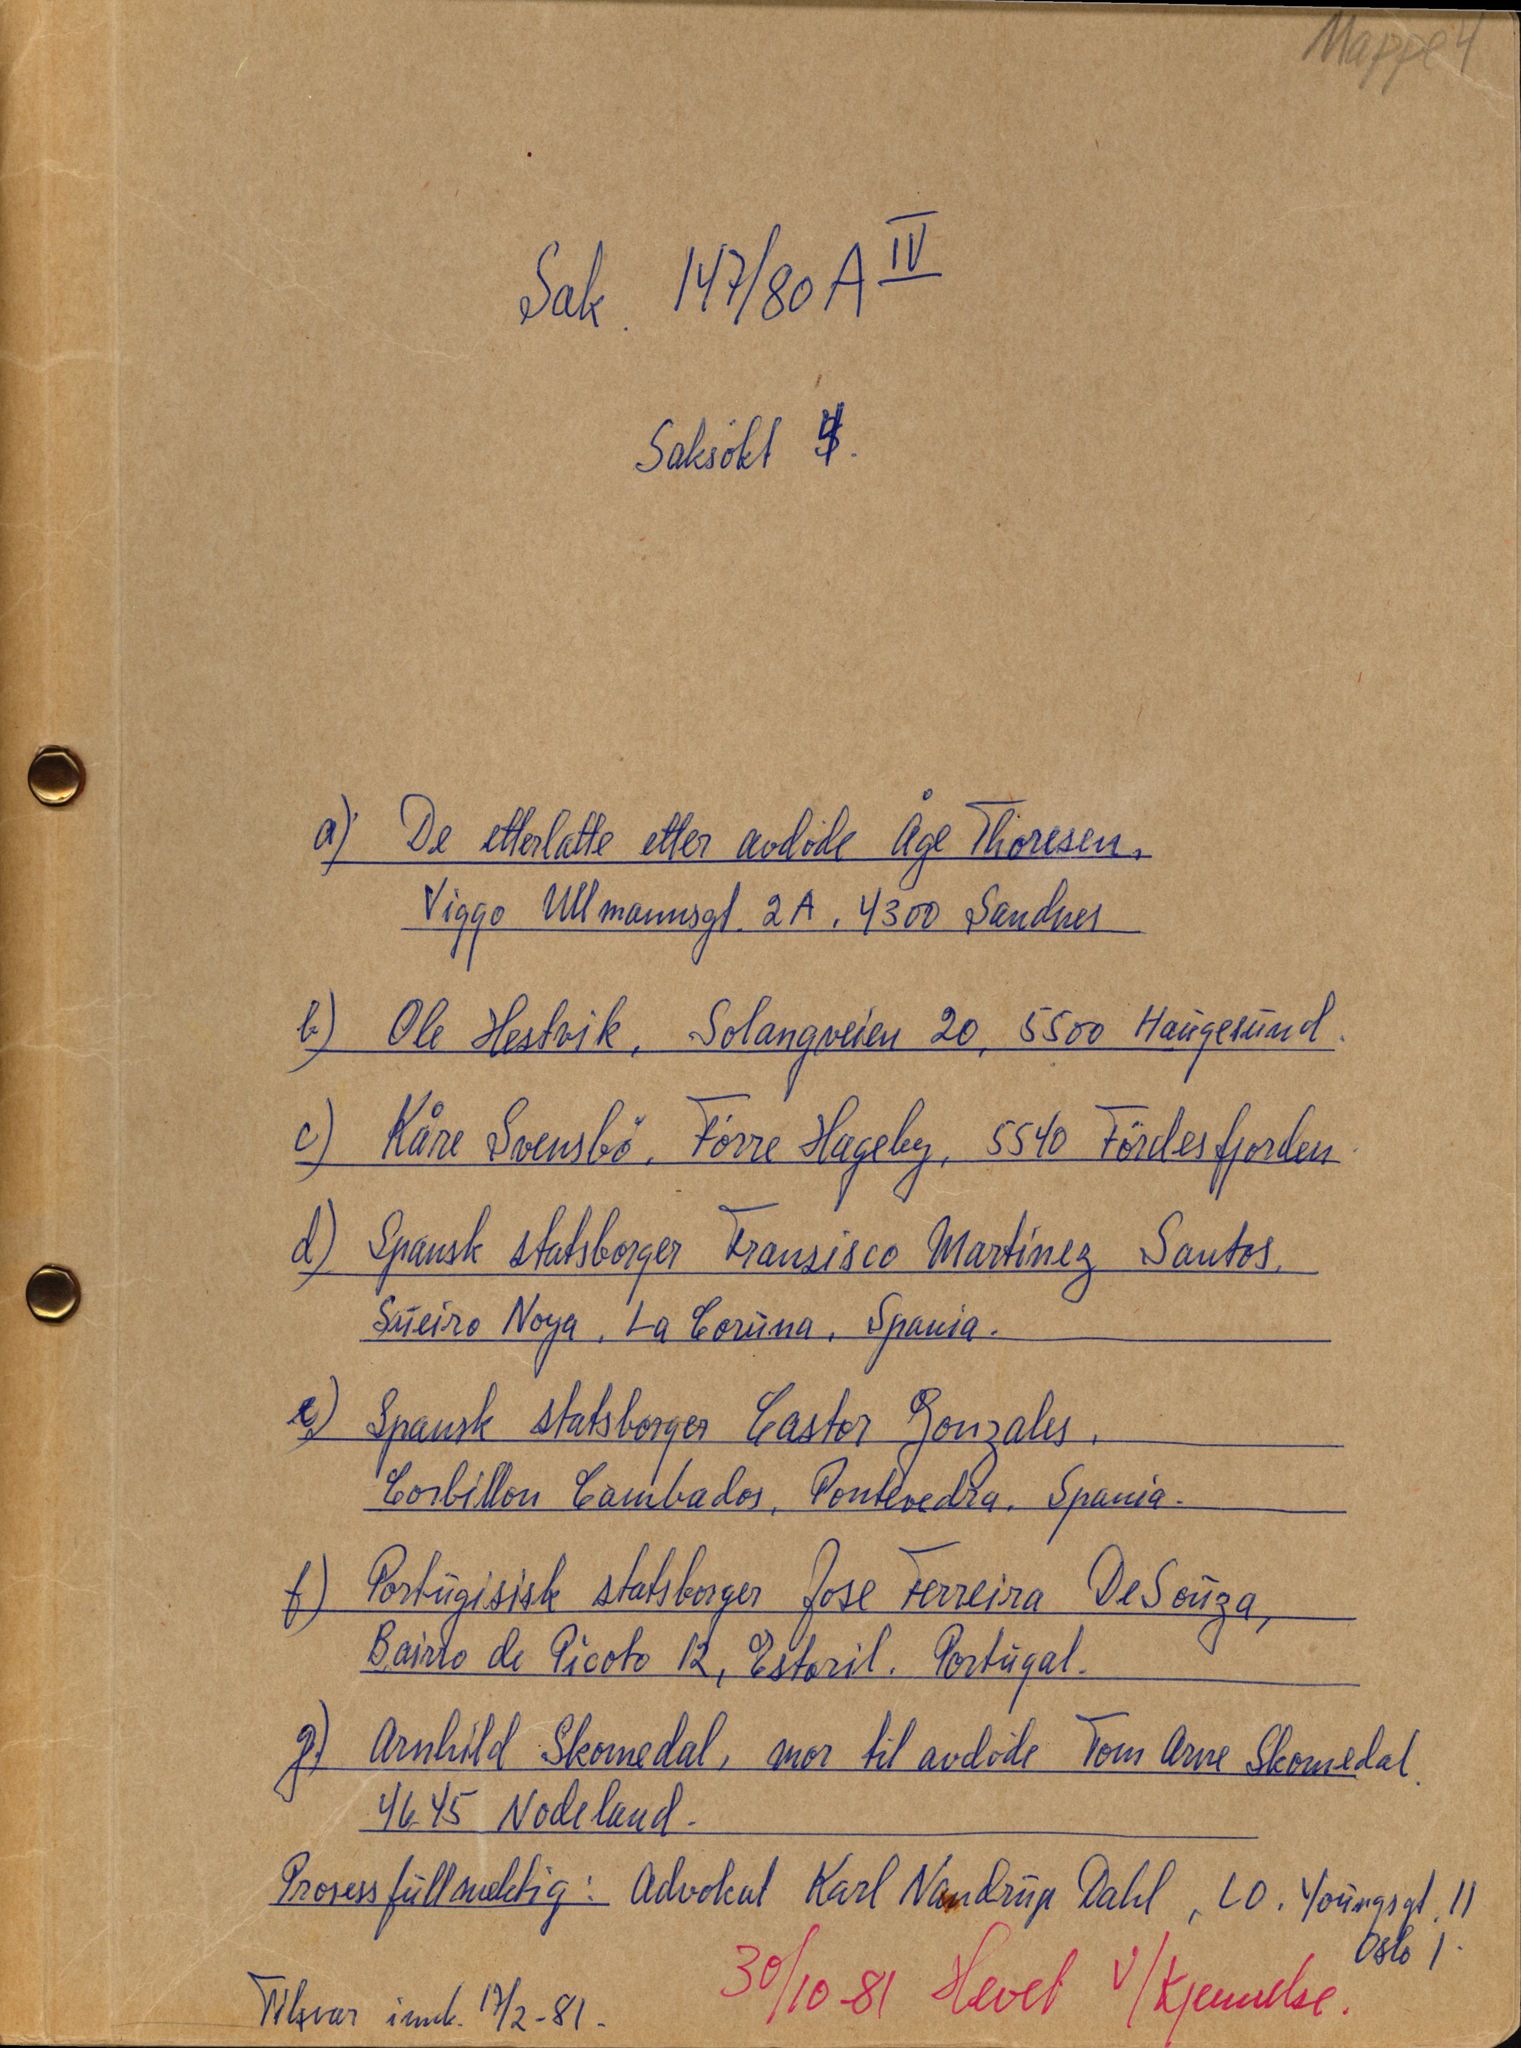 Mappe 4
Sak. 147/80 A IV
Saksökt 4.
a) De etterlatte etter avdøde Åge Thoresen.
Viggo Ullmannsgt. 2A. 4300 Sandnes
b) Ole Hestvik, Solangveien 20, 5500 Haugesund.
c) Kåre Svensbö, Förre Hageby, 5540 Fördesfjorden
d) Spansk statsborger Franzisco Martinez Santos.
Sueiro Noya, La Coruna, Spania.
e) Spansk statsborger Castor Gonzales.
Corbillon Cambados, Pontevedra, Spania.
f) Portugisisk statsborger Jose Ferreira DeSouza,
Bairro de Picoto 12, Estoril. Portugal.
g) Arnhild Skomedal, mor til avdöde Tom Arne Skomedal.
4645 Nodeland.
Prosessfullmektig: Advokat Karl Nandrup Dahl, LO. Youngsgt. 11
Oslo 1.
30/10-81 Hevet v/kjennelse.
Tilsvar innk. 17/2-81.